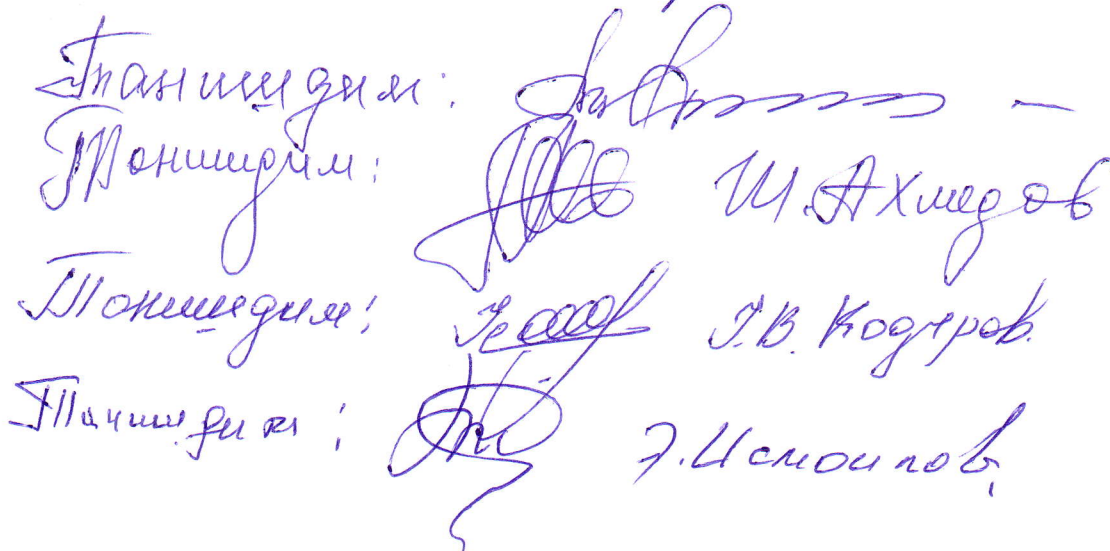 Танишдим:
Танишдим: Ш. Ахмедов
Танишдим: Т.В. Кодиров.
Танишдим: Э. Исмоилов,